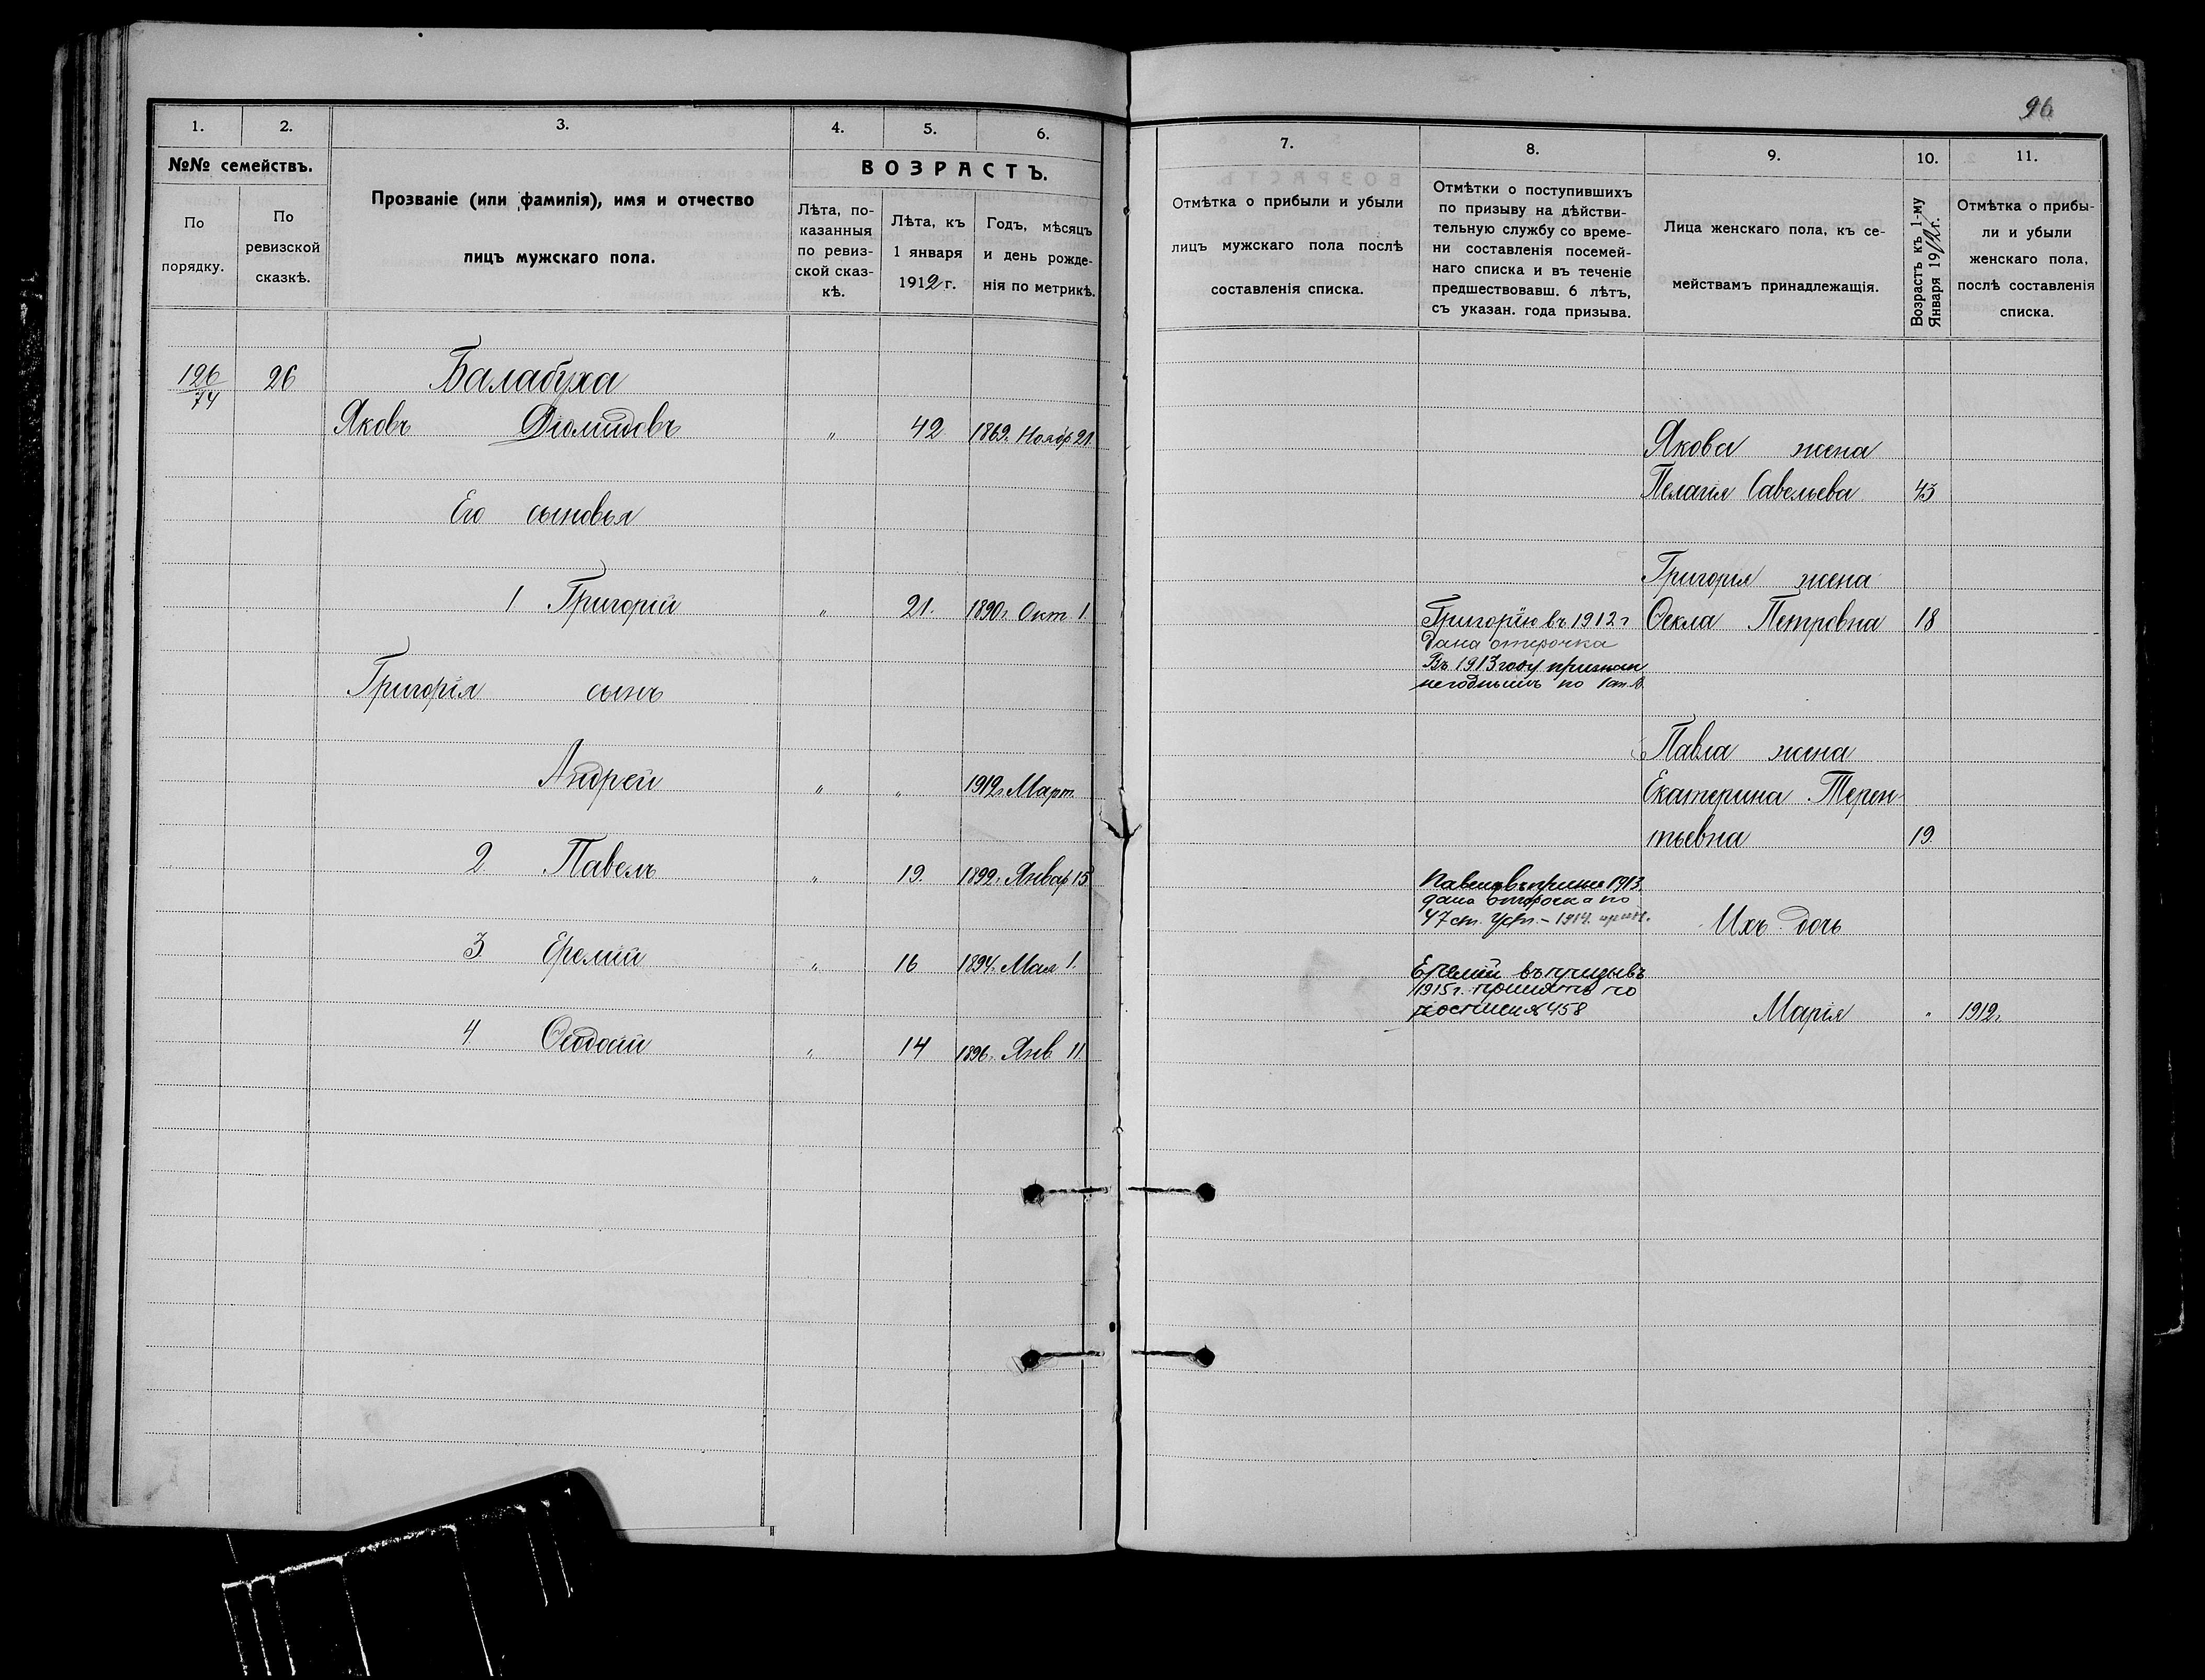 96
1. 2. 3. 4. 5. 6.
№№ семействъ.
По порядку.
По ревизской сказкѣ.
Прозваніе (или фамилія), имя и отчество
лицъ мужскаго пола.
ВОЗРАСТЪ.
Лѣта, по-
казанныя
по ревиз-
ской сказ-
кѣ.
Лѣта, къ
1 января
1912 г.
Годъ, мѣсяцъ
и день рожде-
нія по метрикѣ.
126/74 26 Балабуха
Яковъ Диомидовъ " 42 1869. Ноябр 21.
Его сыновья
1 Григорій " 21. 1890г. Окт. 1.
Григорія сынъ
Андрей " " 1912г. Март.
2 Павелъ " 19. 1892. Январ 15
3 Еремій " 16 1894. Мая 1.
4 Ѳеодосій " 14 1896. Янв 11.
7. 8. 9. 10. 11.
Отмѣтка о прибыли и убыли
лицъ мужскаго пола послѣ
составленія списка.
Отмѣтки о поступившихъ
по призыву на дѣйстви-
тельную службу со време-
ни составленія посемей-
наго списка и въ теченіе
предшествовавш. 6 лѣтъ,
съ указан. года призыва.
Лица женскаго пола, къ се-
мействамъ принадлежащія.
Возрастъ къ 1-му
Января 1912 г.
Отмѣтка о прибы-
ли и убыли
женскаго пола,
послѣ составленія
списка.
Якова жена
Пелагія Савельева 43
Григорія жена
Ѳекла Петровна 18
Григорію въ 1912 г
Дана отсрочка
Въ 1913 году признан
негоднымъ по
Павла жена
Екатерина Терен-
тьевна 19.
1913.
дана отсрочка по
47 ст. Уст. – 1914.
Ихъ дочь
Еремій въ призывъ
1915 г. принятъ по
458
Марія " 1912г.